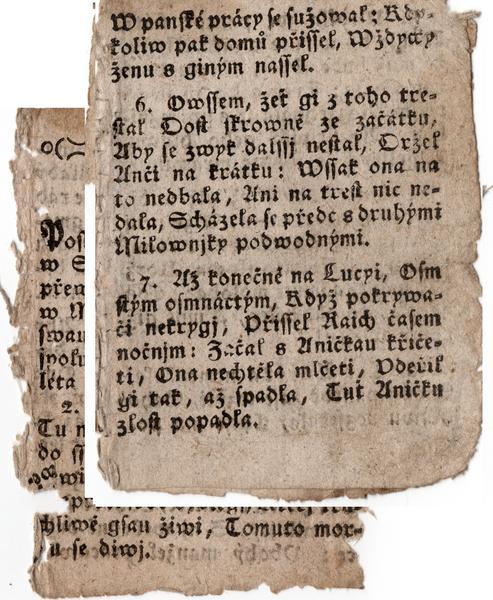 W panské prácy se sužowal: Kdy-
koliw pak domů přissel, Wždycky
ženu s giným nassel.
6. Owssem, žeť gi z toho tre-
stal Dost skrowně ze začátku,
Aby se zwyk dalssj nestal, Držel
Anči na krátku: Wssak ona na
to nedbala, Ani na trest nic ne-
dala, Scházela se předc s druhými
Milownjky podwodnými.
7. Až konečně na Lucyi, Osm
stým osmnáctým, Když pokrywa-
či nekrygj, Přissel Raich časem
nočnjm: Začal s Aničkau křiče-
ti, Ona nechtěla mlčeti, Vdeřil
gi tak, až spadla, Tuť Aničku
zlost popadla.
o(
w
w
swau
léta
2.
Tu
do
chliwě gsau žiwi, Tomuto mor-
u se diwj.